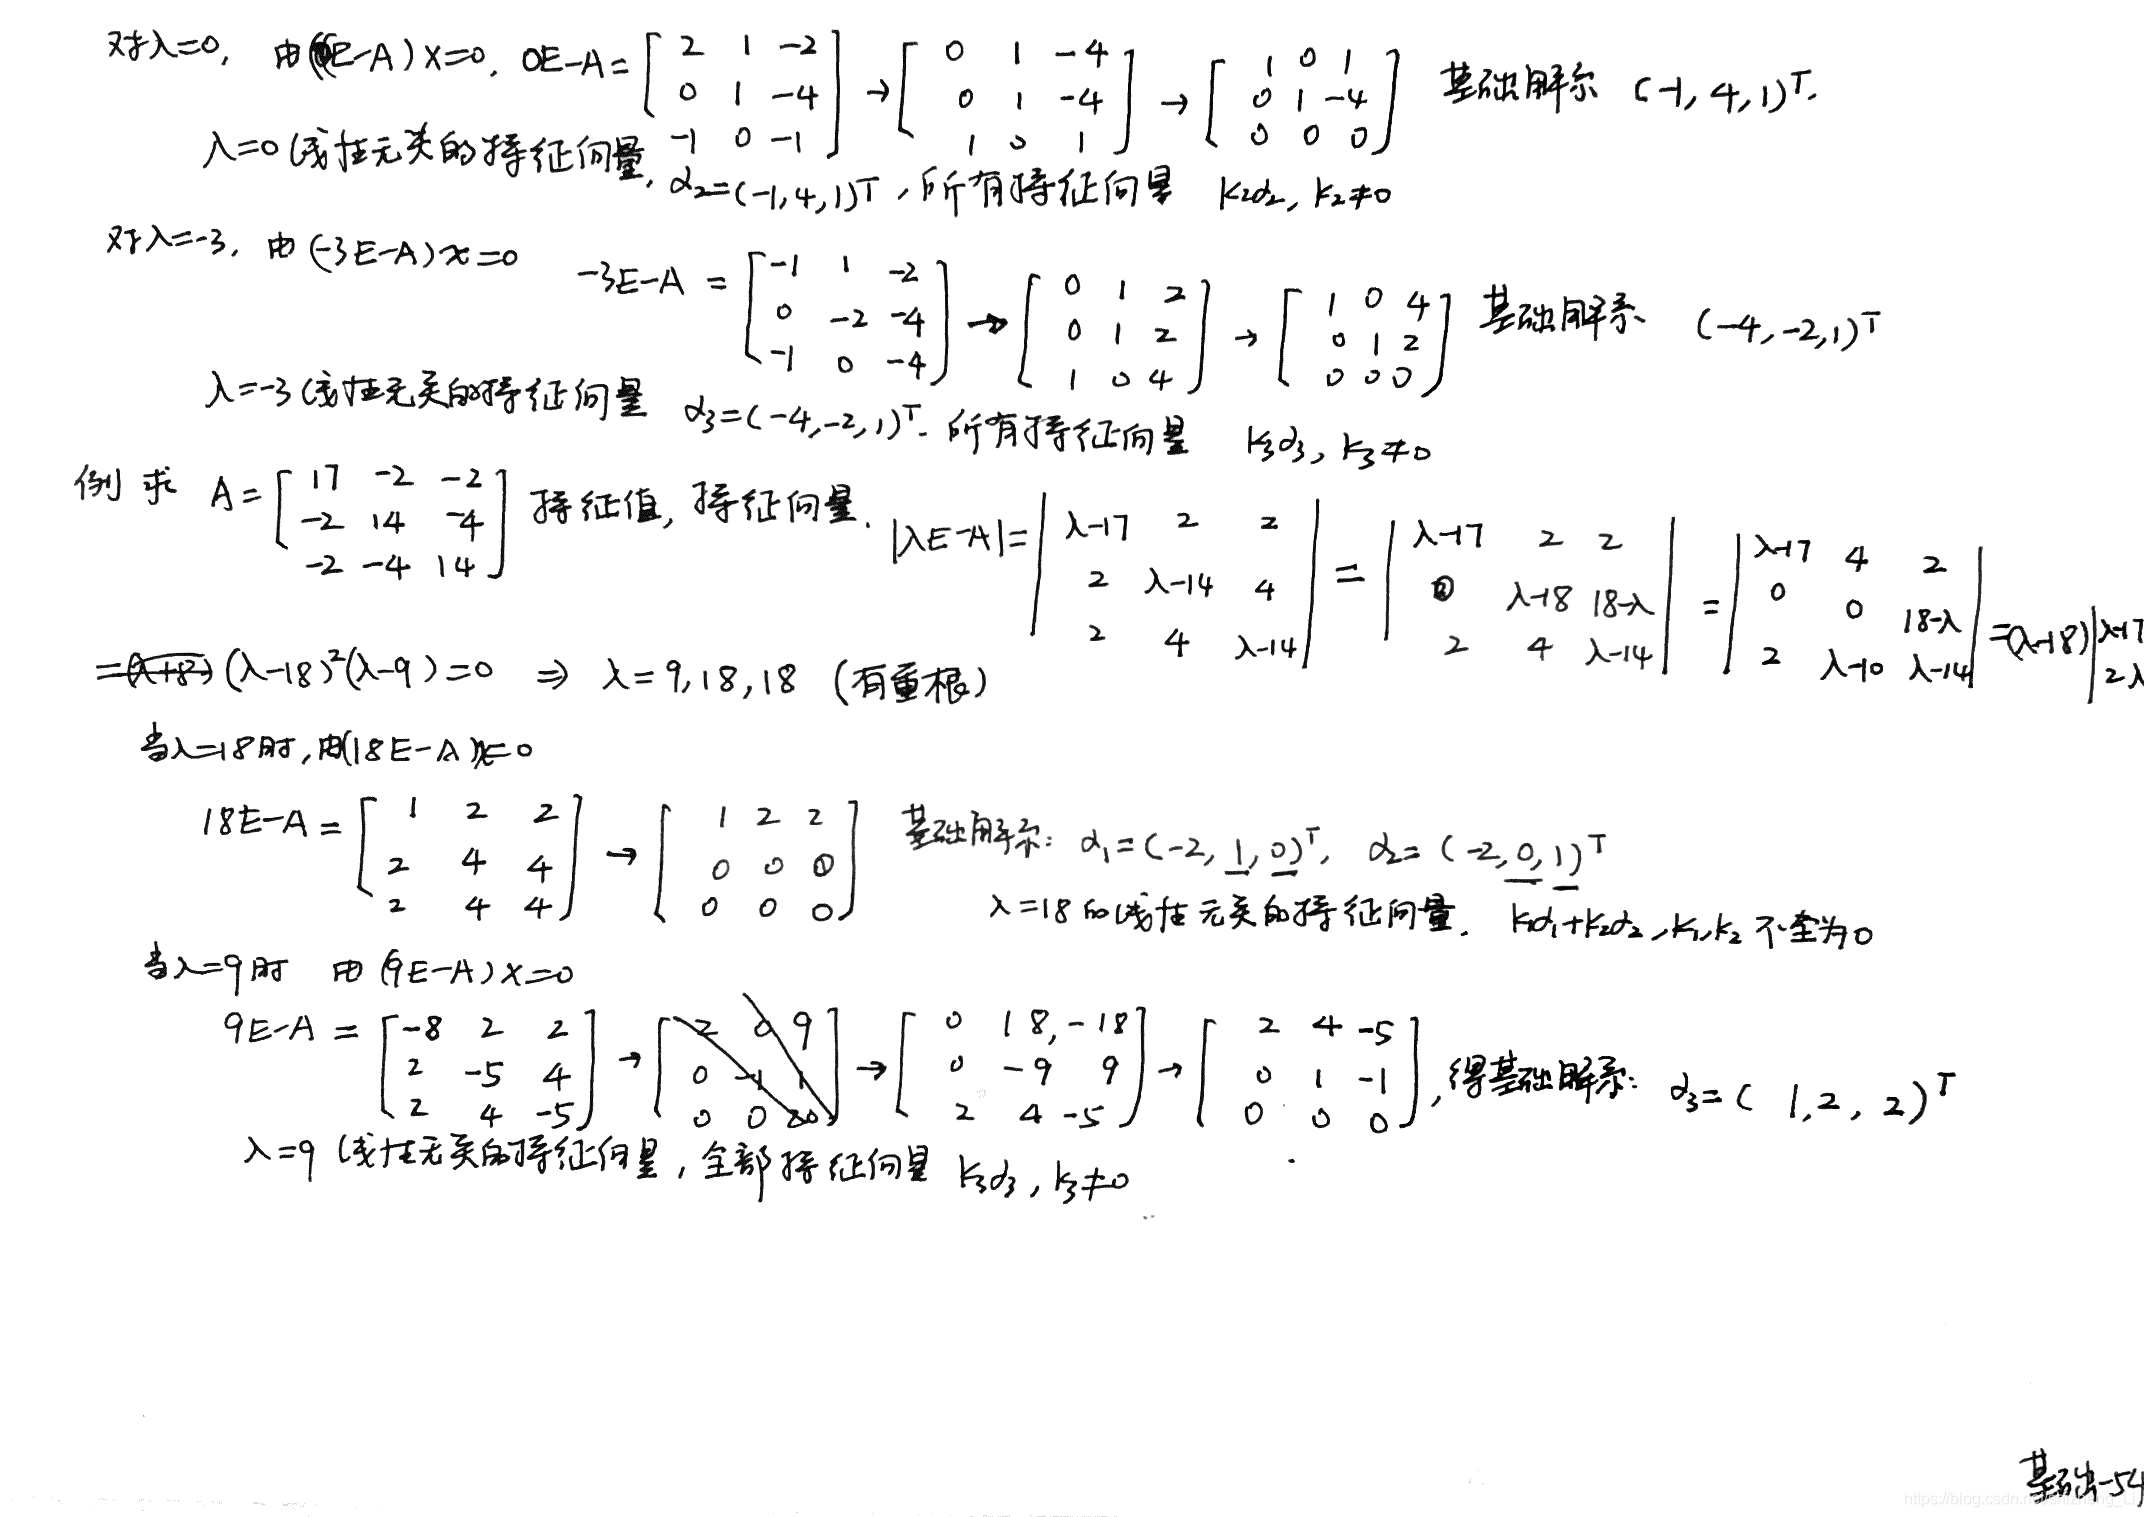 对λ=0, 由(0E-A)X=0, 0E-A=[2 1 -2; 0 1 -4; -1 0 -1] → [0 1 -4; 0 1 -4; 1 0 1] → [1 0 1; 0 1 -4; 0 0 0] 基础解系 (-1, 4, 1)ᵀ.
λ=0 线性无关的特征向量, α₂=(-1,4,1)ᵀ, 所有特征向量 k₂α₂, k₂≠0
对λ=-3, 由(-3E-A)x=0 -3E-A = [-1 1 -2; 0 -2 -4; -1 0 -4] → [0 1 2; 0 1 2; 1 0 4] → [1 0 4; 0 1 2; 0 0 0] 基础解系 (-4, -2, 1)ᵀ
λ=-3 线性无关的特征向量 α₃=(-4,-2,1)ᵀ. 所有特征向量 k₃α₃, k₃≠0
例 求 A=[17 -2 -2; -2 14 -4; -2 -4 14] 特征值, 特征向量. |λE-A|=|λ-17 2 2; 2 λ-14 4; 2 4 λ-14| = |λ-17 2 2; 0 λ-18 18-λ; 2 4 λ-14| = |λ-17 4 2; 0 0 18-λ; 2 λ-10 λ-14| =(λ-18)|λ-17; 2 λ
=(λ-18)²(λ-9)=0 ⇒ λ=9,18,18 (有重根)
当λ=18时,由(18E-A)x=0
18E-A=[1 2 2; 2 4 4; 2 4 4] → [1 2 2; 0 0 0; 0 0 0] 基础解系: α₁=(-2, 1, 0)ᵀ, α₂=(-2,0,1)ᵀ
λ=18的线性无关的特征向量. k₁α₁+k₂α₂, k₁,k₂不全为0
当λ=9时 由(9E-A)x=0
9E-A = [-8 2 2; 2 -5 4; 2 4 -5] → [2 0 9; 0 -1 1; 0 0 20] → [0 18, -18; 0 -9 9; 2 4 -5] → [2 4 -5; 0 1 -1; 0 0 0], 得基础解系: α₃=(1, 2, 2)ᵀ
λ=9 线性无关的特征向量, 全部特征向量 k₃α₃, k₃≠0
基础-54